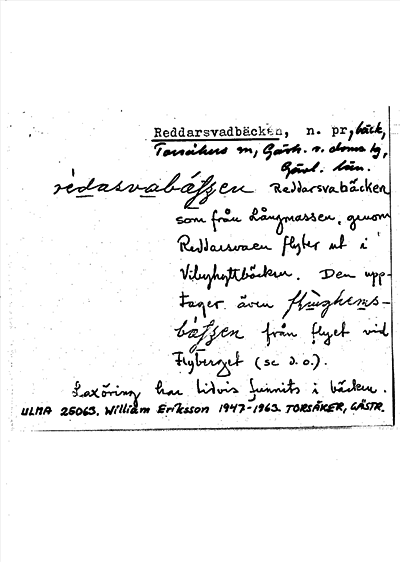 Reddarsvadbäcken, n. pr, bäck,
Torsåkers sn, Gästr. ö. doms lg,
Gävl. län.
Reddarsvabäcken
som från Långmassen, genom
Reddarsvaen flyter ut i
Vibyhyttbäcken. Den upp-
tager även
från flyet vid
Flyberget (se d.o.).
Laxöring har tidvis funnits i bäcken.
ULMA 25063. William Eriksson 1947-1963. TORSÅKER, GÄSTR.